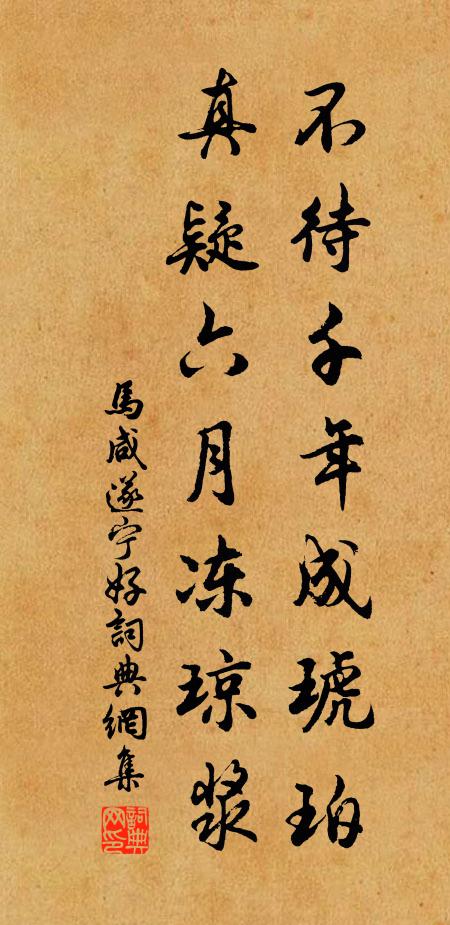 不待千年成琥珀
真疑六月冻琼浆
馬咸遂宁好詞典網集
詞典
网印